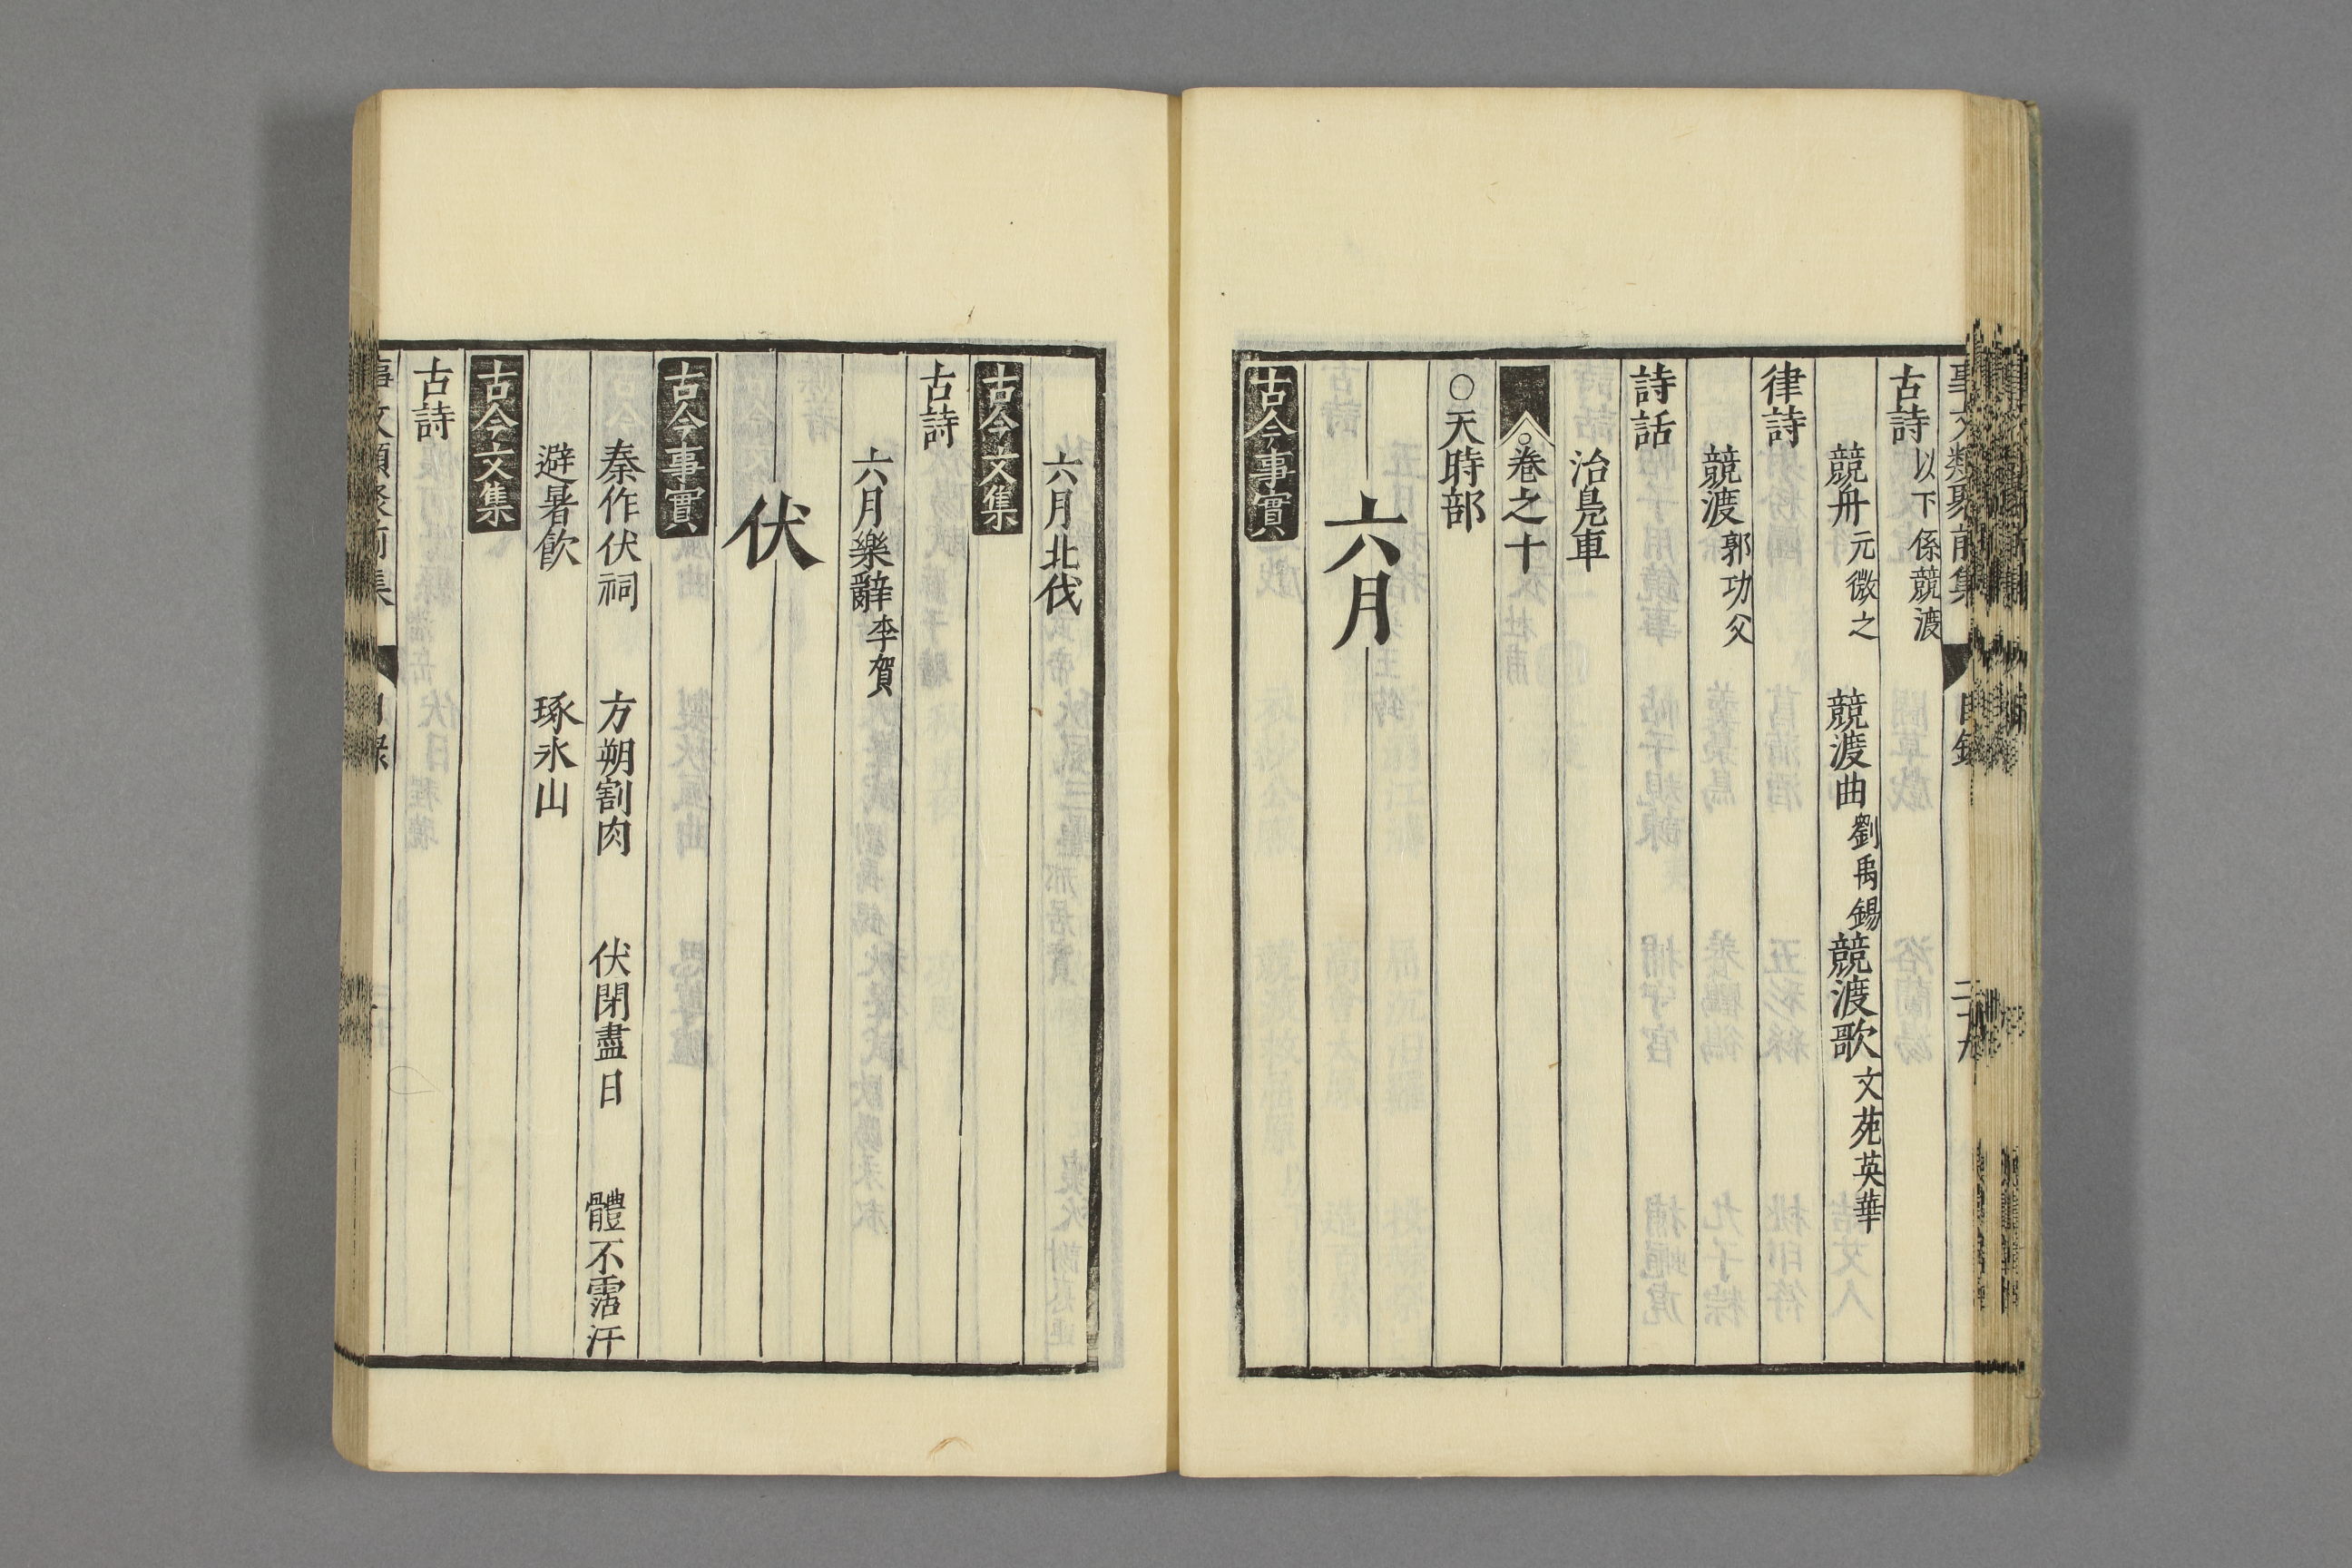 事文類聚前集 目錄 二十九
古詩 以下係競渡
競舟 元微之 競渡曲 劉禹錫 競渡歌 文苑英華
律詩
競渡 郭功父
詩話
治鳧車
○卷之十
○天時部
六月
古今事實
六月北伐
古今文集
古詩
六月樂辭 李賀
伏
古今事實
秦作伏祠 方朔割肉 伏閉盡日 體不霑汗
避暑飲 琢氷山
古今文集
古詩
事文類聚前集 目錄